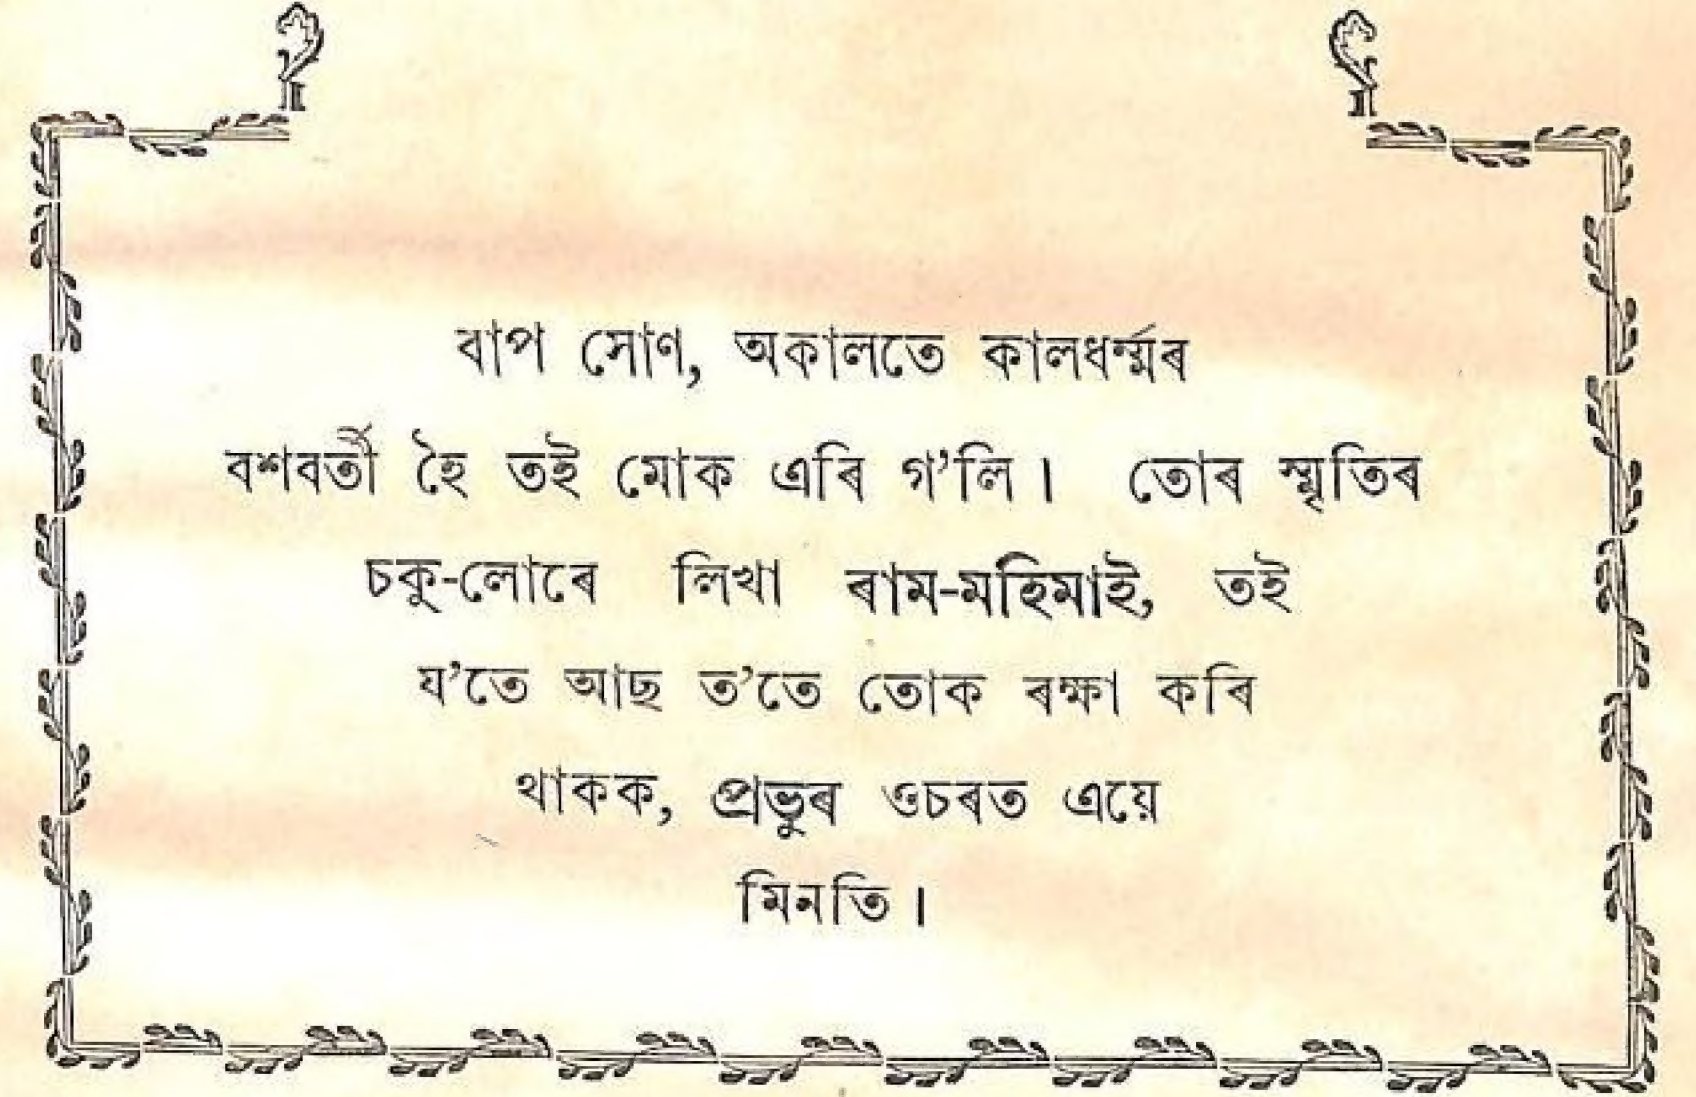 বাপ সোণ, অকালতে কালধৰ্ম্মৰ
বশবৰ্তী হৈ তই মোক এৰি গ’লি। তোৰ স্মৃতিৰ
চকু-লোৰে লিখা ৰাম-মহিমাই, তই
য’তে আছ ত’তে তোক ৰক্ষা কৰি
থাকক, প্ৰভুৰ ওচৰত এয়ে
মিনতি।